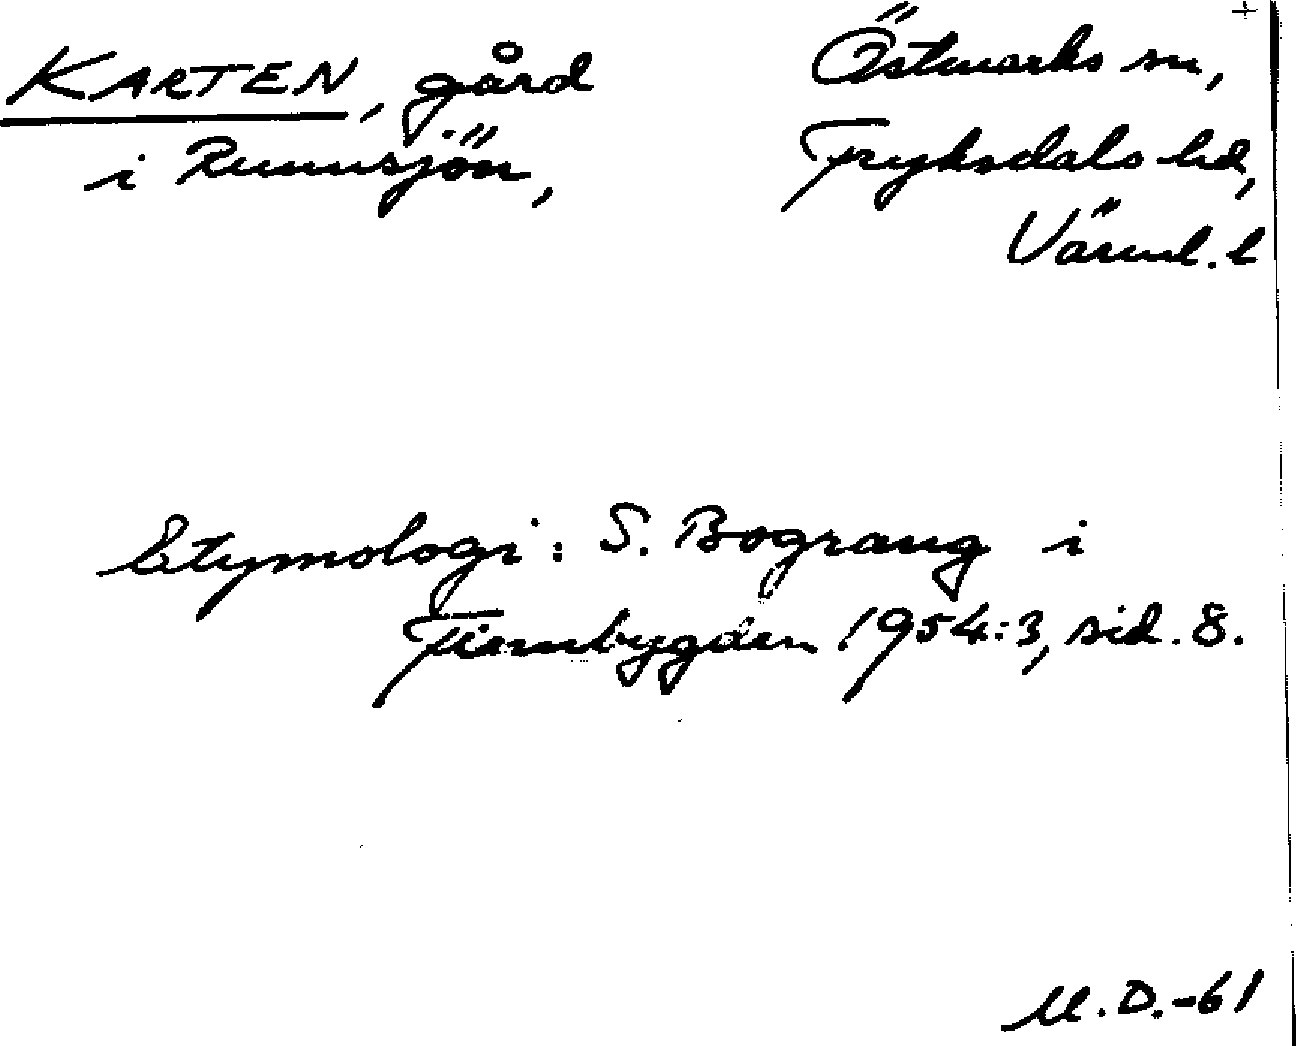 KARTEN, gård
i Runnsjön,
Östmarks sn,
Fryksdals hd,
Värml. l
Etymologi: S. Bograng i
Finnbygden 1954:3, sid. 8.
M.D.-61